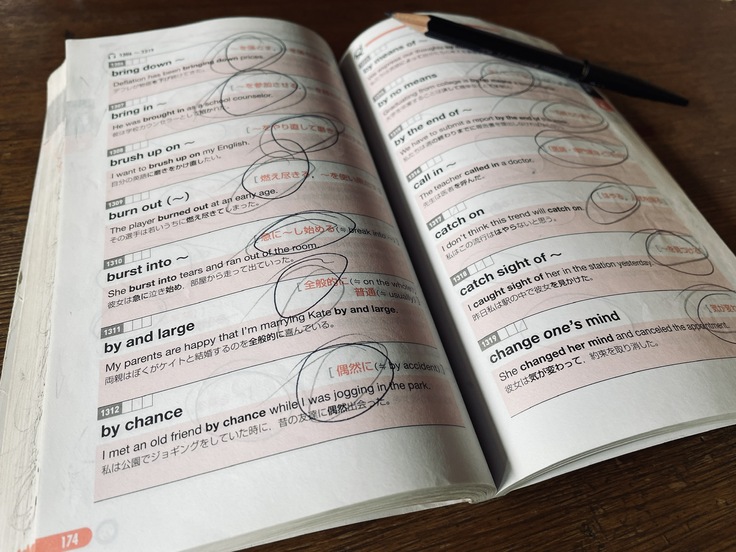 1306 ~ 1319
1306
bring down ~
Deflation has been bringing down prices.
1307
bring in ~
[ ~を参加させる
He was brought in as a school counselor.
彼は学校カウンセラーとして
1308
brush up on ~
[ ~をやり直して磨
I want to brush up on my English.
自分の英語に磨きをかけ直したい。
1309
burn out (~)
[ 燃え尽きる,
The player burned out at an early age.
その選手は若いうちに燃え尽きてしまった。
1310
burst into ~
急に~し始める(≒ break into)
She burst into tears and ran out of the room.
彼女は急に泣き始め, 部屋から走って出ていった。
1311
by and large
[ 全般的に(≒ on the whole),
普通(≒ usually) ]
My parents are happy that I'm marrying Kate by and large.
両親はぼくがケイトと結婚するのを全般的に喜んでいる。
1312
by chance
[ 偶然に(≒ by accident) ]
I met an old friend by chance while I was jogging in the park.
私は公園でジョギングをしていた時に, 昔の友達に偶然出会った。
174
by means of
by no means
by the end of ~
We have to submit a report by the end of
call in ~
The teacher called in a doctor.
先生は医者を呼んだ。
1317
catch on
I don't think this trend will catch on.
私はこの流行ははやらないと思う。
1318
catch sight of ~
I caught sight of her in the station yesterday.
昨日私は駅の中で彼女を見かけた。
1319
change one's mind
She changed her mind and canceled the appointment.
彼女は気が変わって, 約束を取り消した。